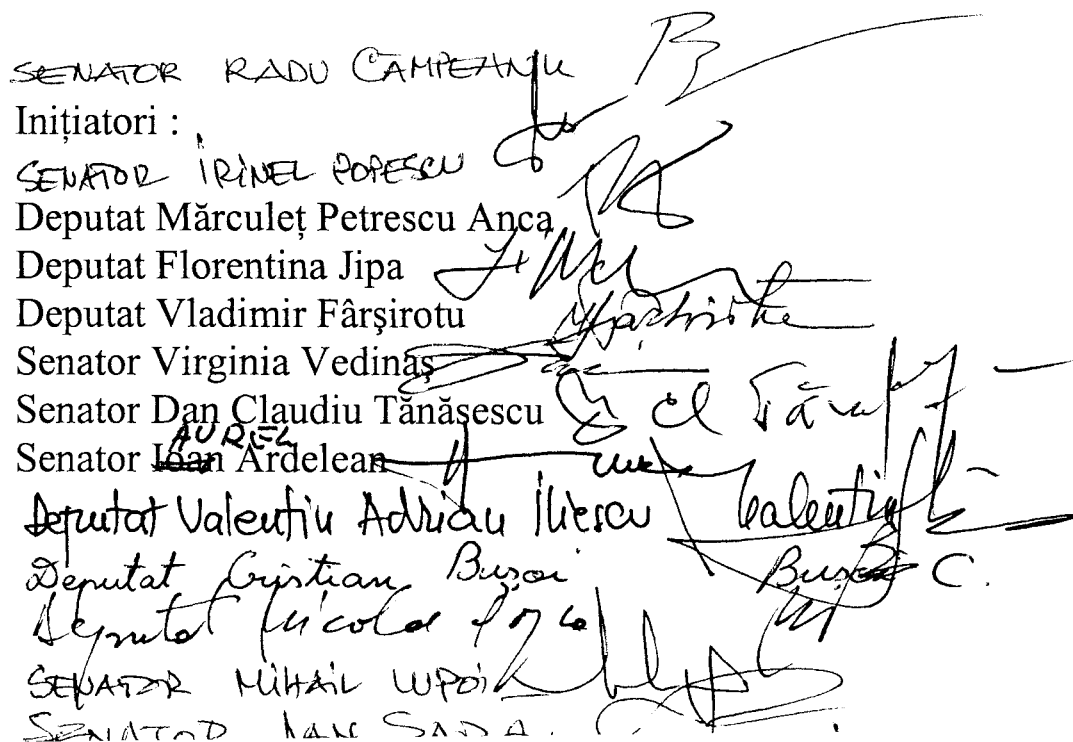 SENATOR RADU CÂMPEANU
Inițiatori :
SENATOR IRINEL POPESCU
Deputat Mărculeț Petrescu Anca
Deputat Florentina Jipa
Deputat Vladimir Fârșirotu
Senator Virginia Vedinaș
Senator Dan Claudiu Tănăsescu
Senator AUREL Ardelean
Deputat Valentin Adrian Iliescu Valentin
Deputat Cristian Bușoi Bușoi C.
Deputat
SENATOR MIHAIL LUPOI
SENATOR